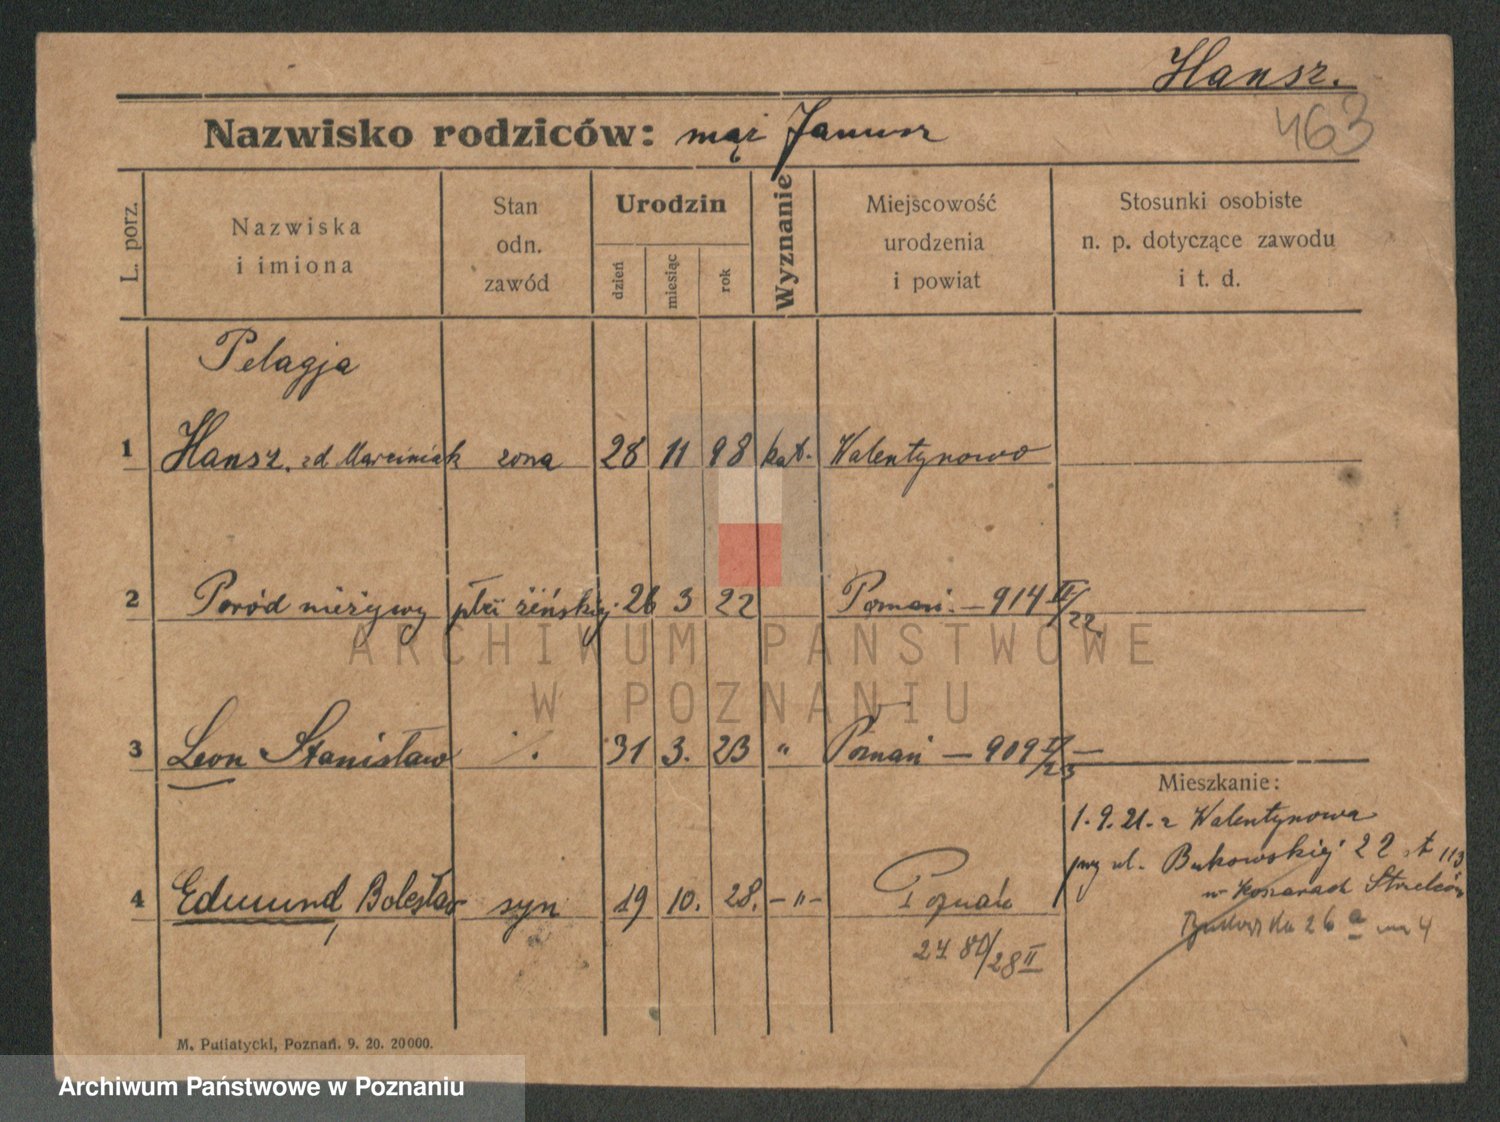 Hansz.
463
Nazwisko rodziców: mąż Janusz
L. porz.
Nazwiska i imiona
Stan odn. zawód
Urodzin
dzień
miesiąc
rok
Wyznanie
Miejscowość urodzenia i powiat
Stosunki osobiste n. p. dotyczące zawodu i t. d.
Pelagja
1 Hansz. zd Marciniak żona 28 11 98 kat. Walentynowo
2 Poród nieżywy płci żeńskiej 26 3 22 Poznań. – 914 II/22.
3 Leon Stanisław ·/. 31 3. 23 " Poznań – 909 II/23 –
Mieszkanie:
1. 9. 21. z Walentynowa
przy ul. Bukowskiej 22 st 113
w koszarach Strzelców
26 a m 4
4 Edmund, Bolesław syn 19 10. 28. – " – Poznań
2480/28 II
M. Putiatycki, Poznań. 9. 20. 20000.
ARCHIWUM PAŃSTWOWE
W POZNANIU
Archiwum Państwowe w Poznaniu